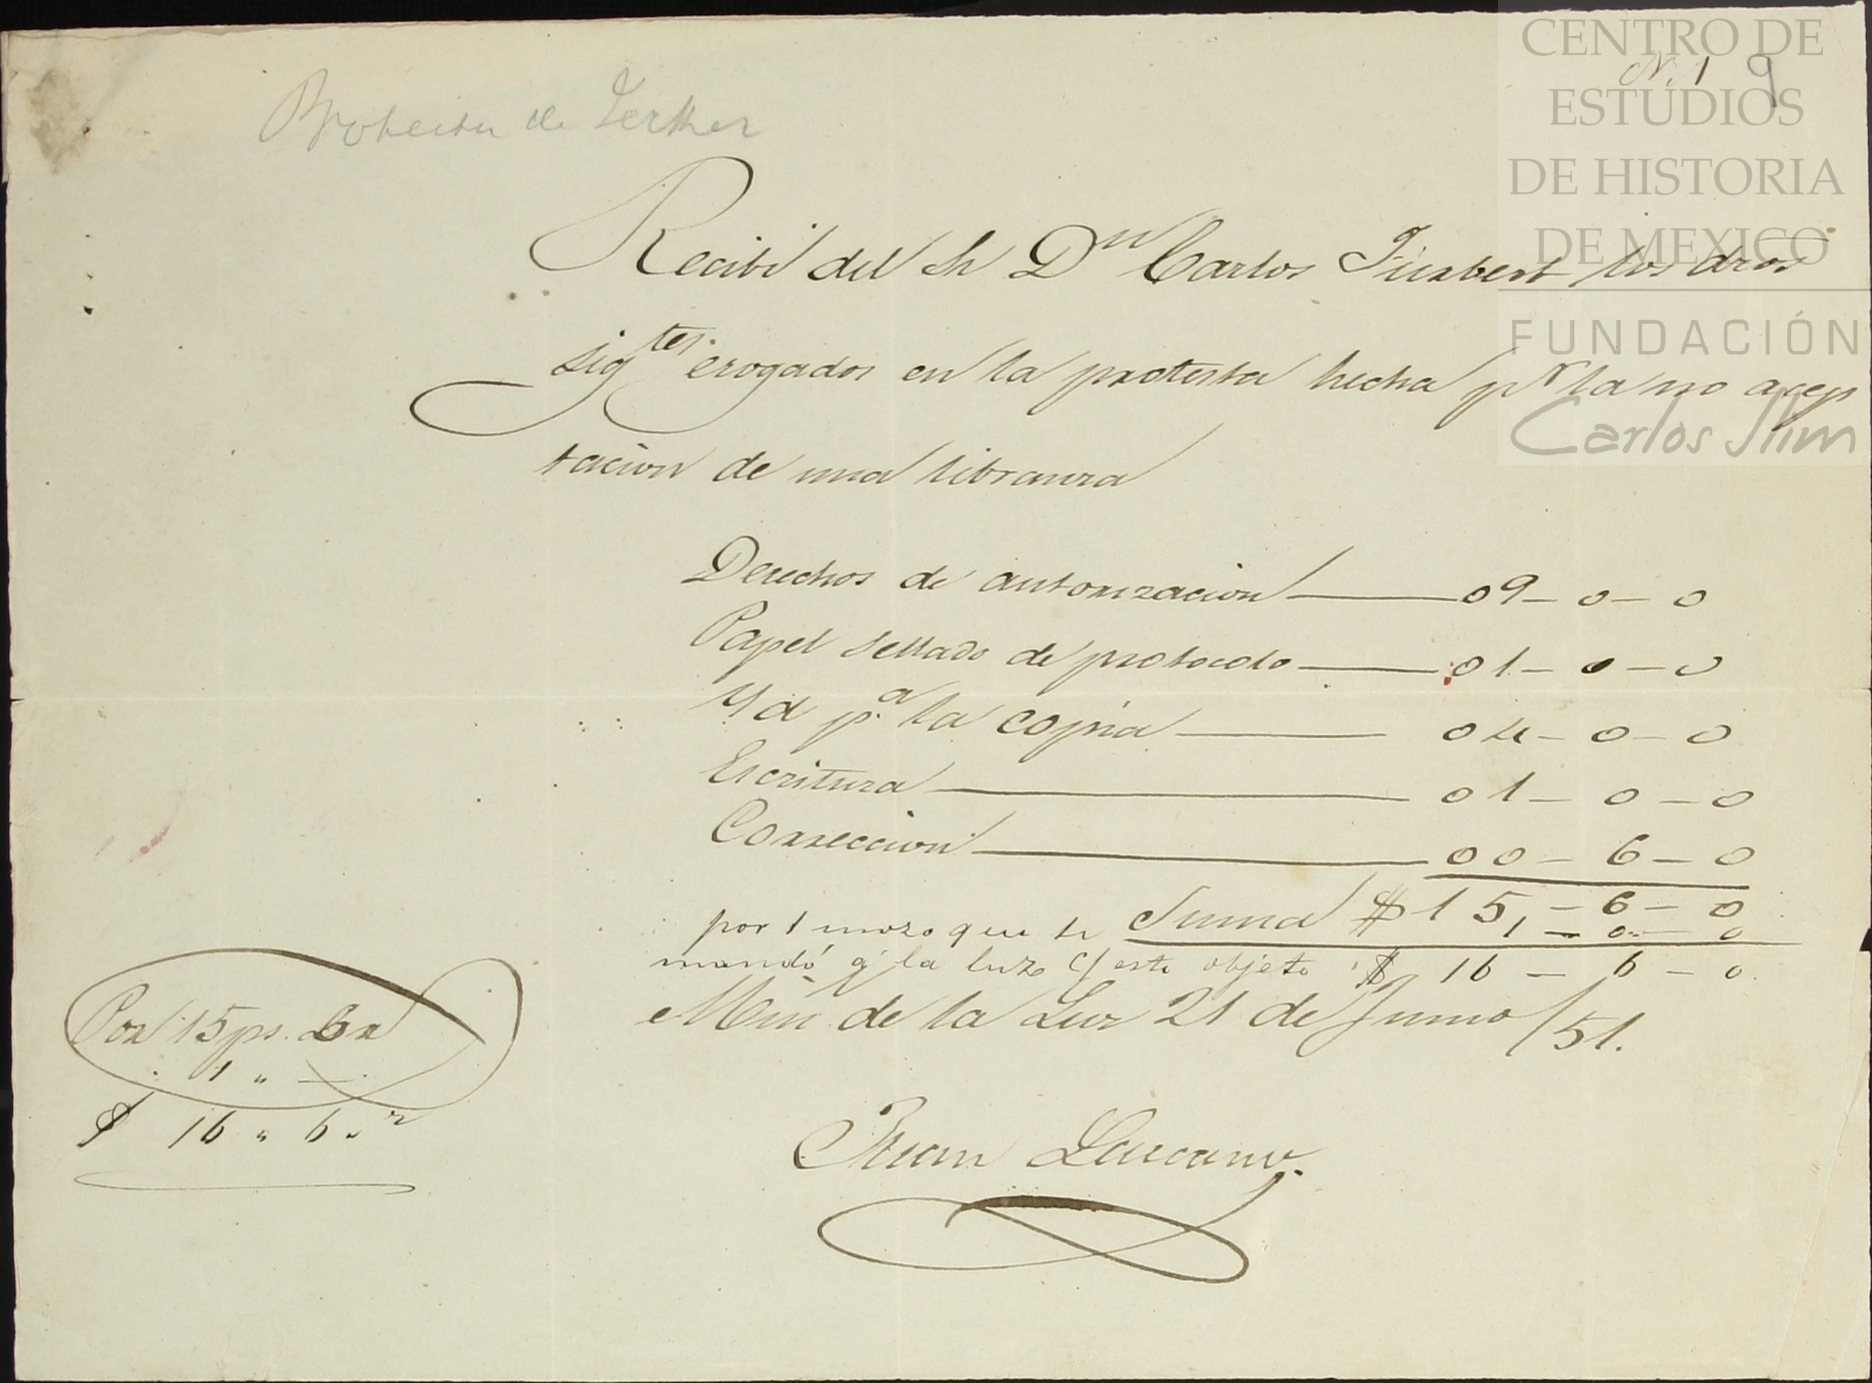 CENTRO DE
ESTUDIOS
DE HISTORIA
DE MEXICO
FUNDACIÓN
Carlos Slim
N. 1 9
de Jecker
Recibi del Sr Dn Carlos los dros
sigtes. erogados en la protesta hecha pr la no acep
tacion de una libranza
Derechos de autorizacion 09-0-0
Papel sellado de protocolo 01-0-0
Yd pa. la copia 04-0-0
Escritura 01-0-0
Correccion 00-6-0
Suma $ 15,-6-0
por 1 mozo que se 1-0-0
mandó a la luz c/ este objeto $ 16-6-0
Min de la Luz 21 de Junio/51.
Juan
Por 15 ps. 6 r
1 " —
$ 16 " 6 " r